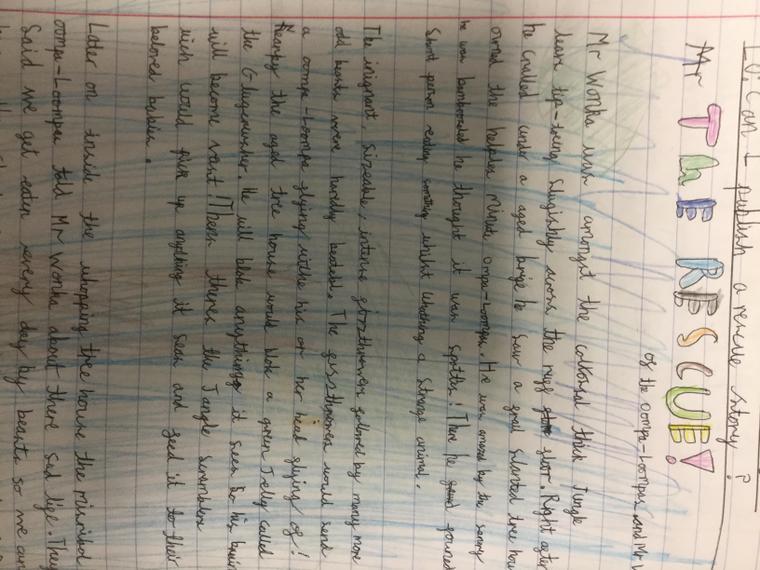 LO: Can I publish a rescue story?
Mr
THE RESCUE!
of the oompa-loompas and Mr W
Mr Wonka was amongst the colossal thick Jungle
leave tip-toeing slugishly across the ruff floor. Right after
he crawled under a aged brige he saw a goal slanted tree hou
the helpless minute ompa-loompa. He was amazed by the
he was bamboozled he thought it was spotless! There he gound
Smart person reading something whilst whatching a strange animal.
The inignant, sizeable, intense followed by many more
odd beasts were hardly beatable. The would send
a oompa-loompa flying withe his or her head flying of!
Nearby the aged tree house would blok a green Jelly called
the He will blok anything it sees so his brain
will become vast! Then theres the Jangle
wich would give up anything it sean and geed it to their
beloved babies.
Later on inside the whopping tree house the misribel
oompa-loompa told Mr Wonka about there sad lige. They
Said we get eaten every day by beasts so we can